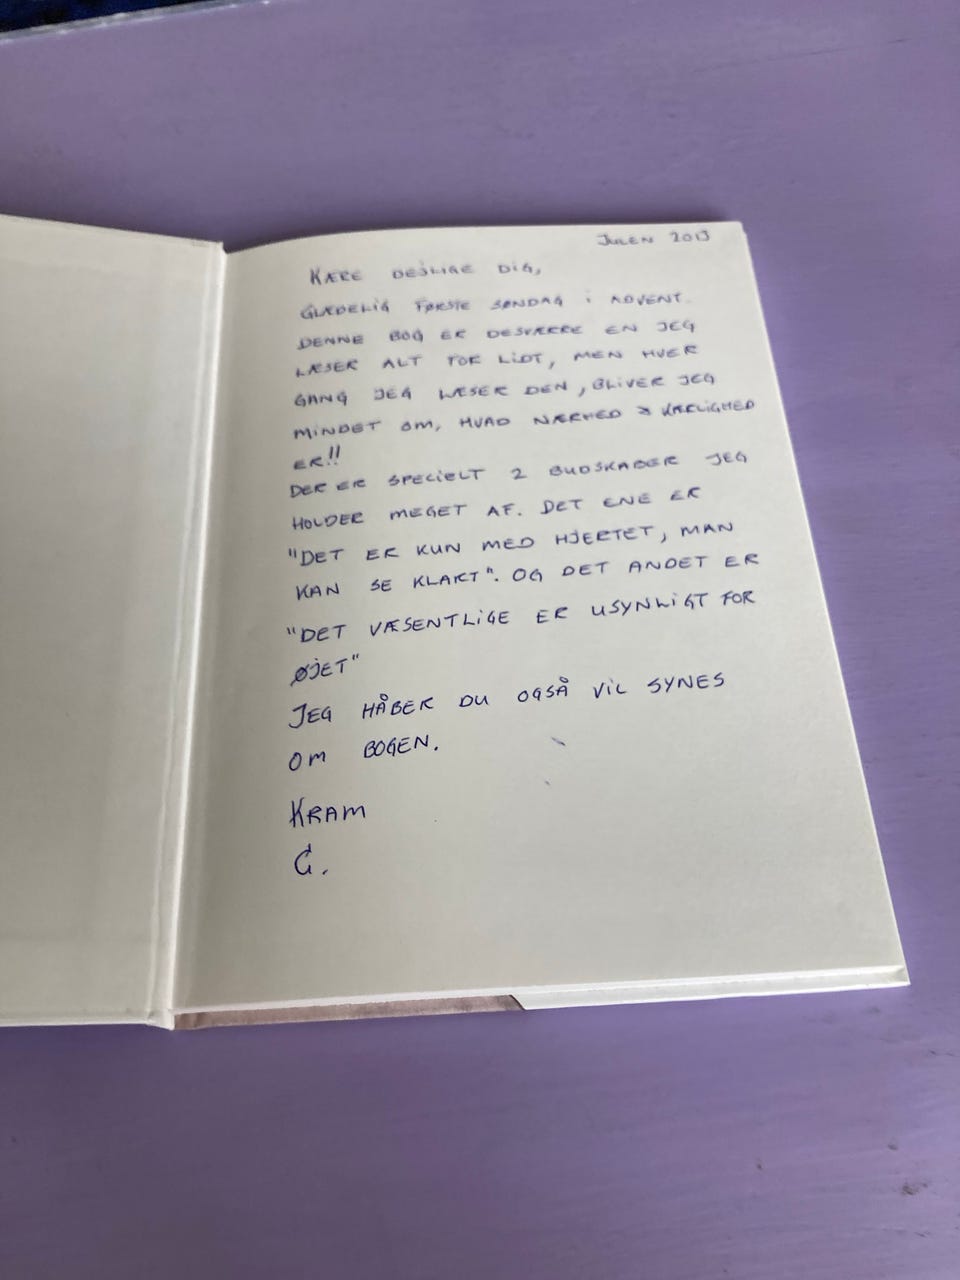 JULEN 2013
KÆRE DEJLIGE DIG,
GLÆDELIG FØRSTE SØNDAG i ADVENT.
DENNE BOG ER DESVÆRRE EN JEG
LÆSER ALT FOR LiDT, MEN HVER
GANG JEG LÆSER DEN, BLIVER JEG
MiNDET OM, HVAD NÆRHED & KÆRLIGHED
ER!!
DER ER SPECIELT 2 BUDSKABER JEG
HOLDER MEGET AF. DET ENE ER
"DET ER KUN MED HJERTET, MAN
KAN SE KLART". OG DET ANDET ER
"DET VÆSENTLiGE ER USYNLiGT FOR
ØJET"
JEG HÅBER DU OGSÅ ViL SYNES
OM BOGEN.
KRAM
C.